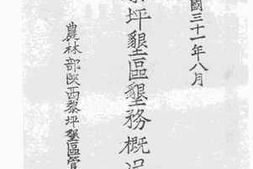 國三十一年八月
坪墾區墾務概況
農林部陝西黎坪墾區管